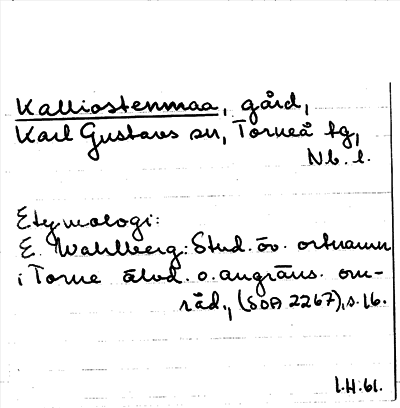 Kalliostenmaa, gård,
Karl Gustavs sn, Torneå tg,
Nb. l.
Etymologi:
E. Wahlberg: Stud. öv. ortnamn
i Torne älvd. o. angräns. om-
råd., (SOA 2267), s. 16.
I.H. 61.